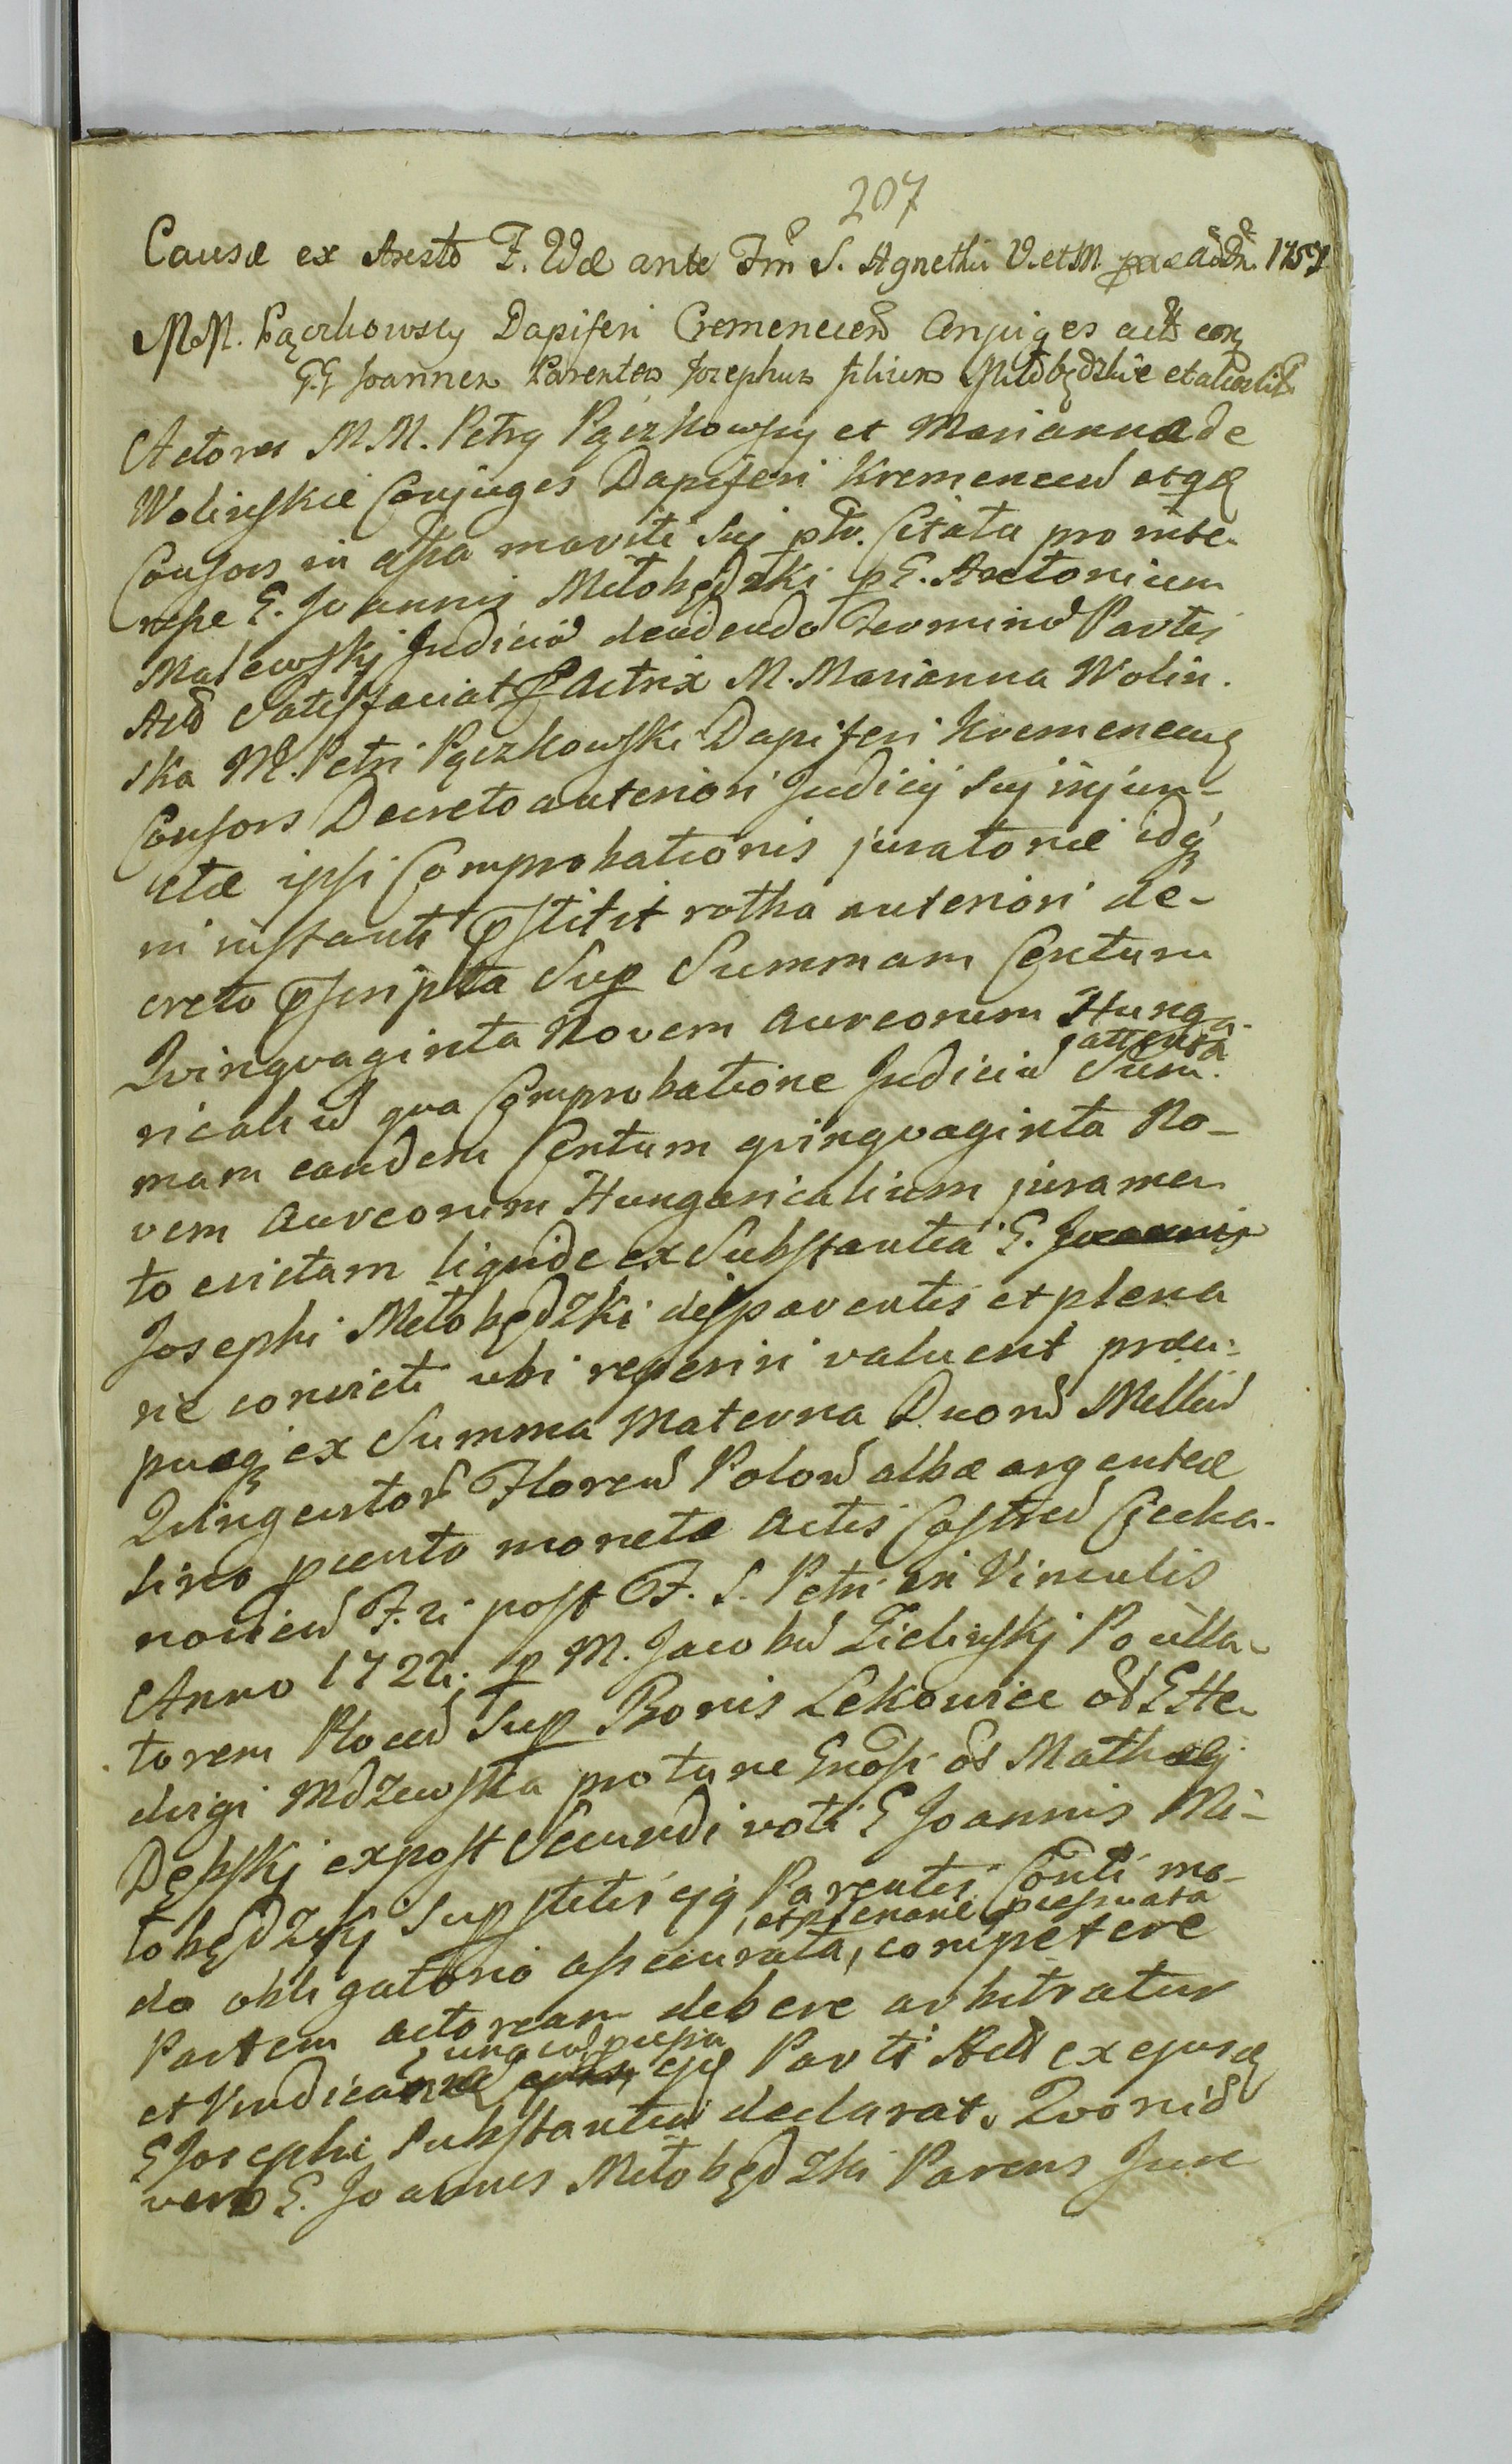 207
Causæ ex Aresto F. 2dæ ante Fm̃ S. Agnethis V. et M. A. Dn. 1751
MM. Pączkowscy Dapiferi Cremenecen Conjuges act con
G.G Joannem Parentem Josephum filium Miłobędzkie et alios
Actores M M. Petrq Pączkowsky et Marianna de
Wolinskie Conjuges Dapiferi Kremenecen atqꝫ
Consors in assa mariti sui ptr. Citata pro inte-
resse G. Joannis Miłobędzki p G. Antonium
Malewskj Judicio decidendo Termino Partis
Act satisfaciat Actrix M. Marianna Wolin-
ska M. Petri Pączkowski Dapiferi Kremenecen
Consors Decreto anteriori Judicij sui injun-
ctæ ipsi Comprobationis juratoriæ idqꝫ
in instanti pstitit rotha anteriori de-
creto pscripta Sup Summam Centum
Qvinqvaginta Novem Aureorum Hunga-
ricaliu qva Comprobatione attenta Judiciu Sum-
mam eandem Centum qvinqvaginta No-
vem Aureorum Hungaricalium juramen-
to evictam liqvide ex Substantia G. Joannis
Josephi Miłobędzki disparentis et plena-
rie convicti ubi reperiri valuerit præci-
pueqꝫ ex Summa Materna Duoru Milliu
Qvingentoru Floren Polon albæ argenteæ
sine pcento monetæ Actis Castren Ciecha-
novien F. 2i post F. S. Petri in Vinculis
Anno 1722i. p M. Jacobu Zielinskj Pocilla-
torem Plocen Sup Bonis Lekowice ad G He-
dvigi Mdzewska pro tunc Gnosi ad Mathæi
Dębskj expost Secundi voti G Joannis Mi-
łobędzkj Supstitis ejq Parentis Condti mo-
do obligatorio assecurata, et plenarie pressuata competere
Partem actoream debere arbitratur
et Vindicandæ una cu pressa ejꝫ Parti Act ex ejusdꝫ
G Josephi Substantia declarat. Qvoniā
vero G. Joannes Miłobędzki Parens Jure